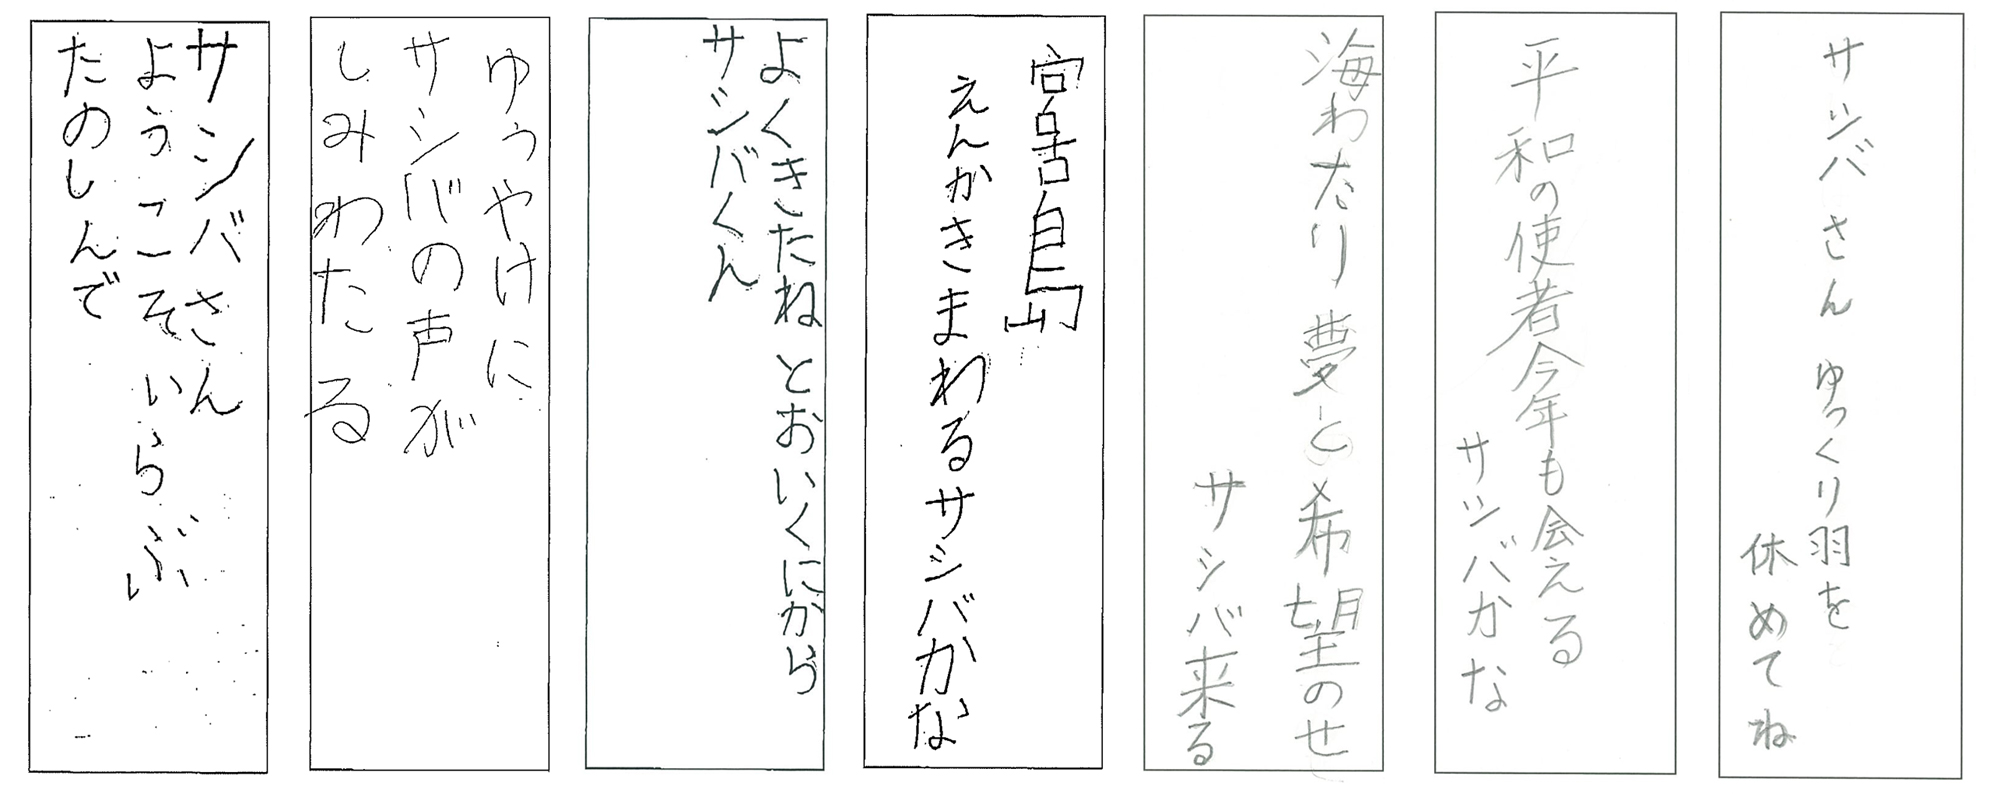 サシバさん ゆっくり羽を
休めてね
平和の使者今年も会える
サシバかな
海わたり 夢と希望のせ
サシバ来る
宮古島
えんかきまわるサシバかな
よくきたね とおいくにから
サシバくん
ゆうやけに
サシバの声が
しみわたる
サシバさん
ようこそいらぶ
たのしんで